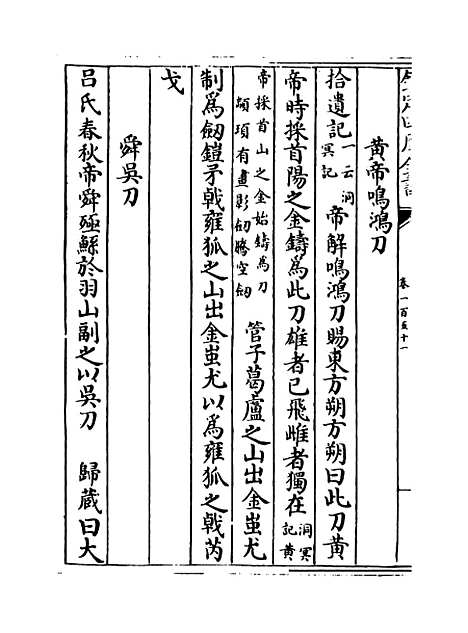 卷一百五十一
黄帝鳴鴻刀
拾遺記一云洞冥記帝解鳴鴻刀賜東方朔方朔曰此刀黄
帝時採首陽之金鑄為此刀雄者已飛雌者獨在洞冥記黄
帝採首山之金始鑄為刀顓頊有畫影劒騰空劒 管子葛盧之山出金蚩尤
制為劒鎧矛戟雍狐之山出金蚩尤以為雍狐之戟芮
戈
舜吳刀
吕氏春秋帝舜殛鯀於羽山副之以吳刀 歸蔵曰大